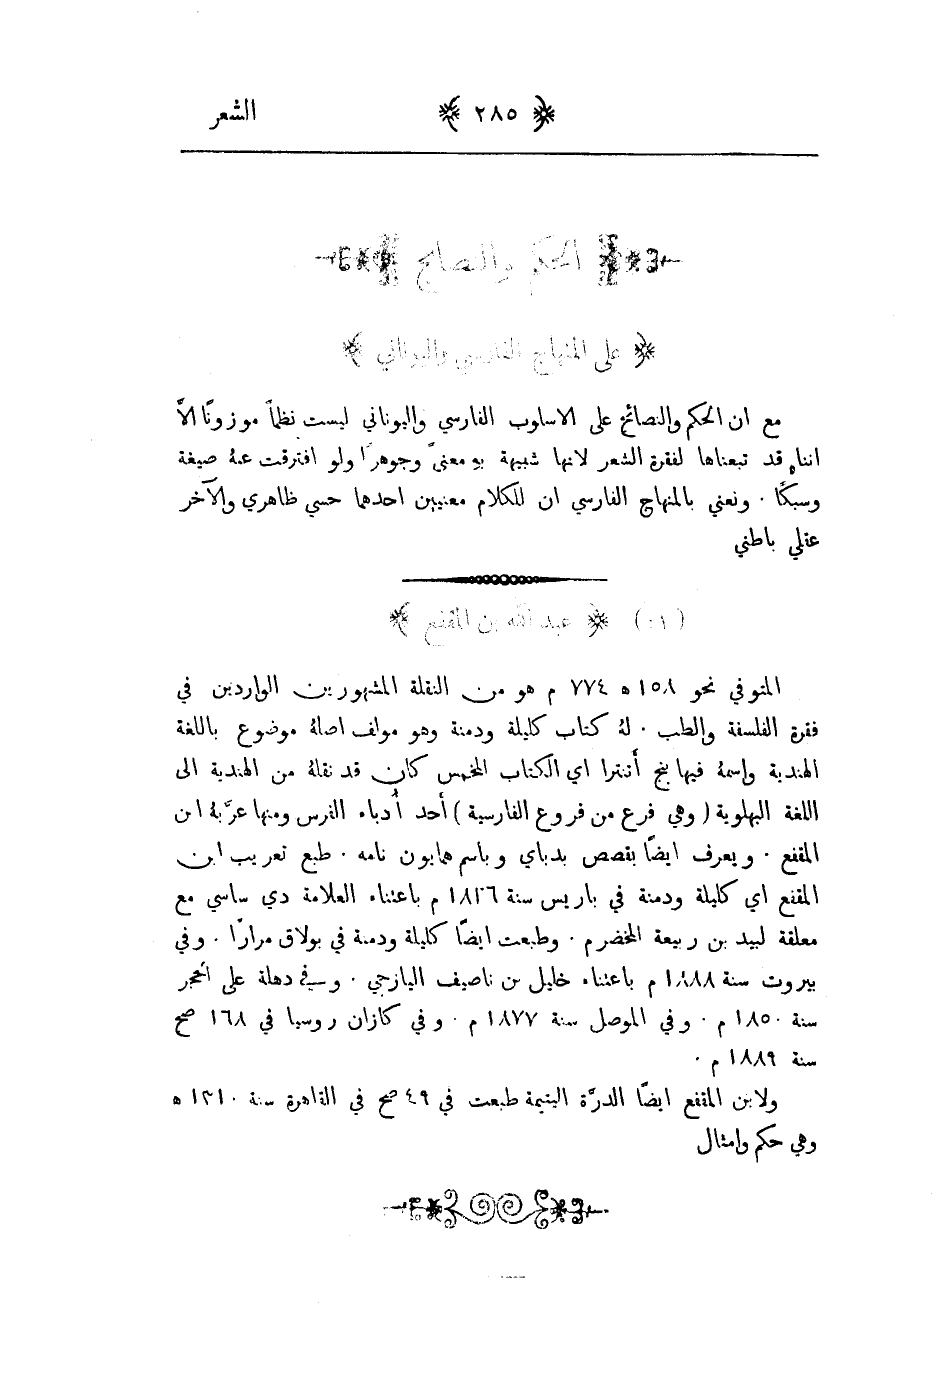 ﴿ ٢٨٥ ﴾ الشعر
الحكم والنصائح
﴿ على المنهاج الفارسي واليوناني ﴾
مع ان الحكم والنصائح على الاسلوب الفارسي واليوناني ليست نظماً موزونًا الاَّ
اننا قد تبعناها لفقرة الشعر لانها شبيهة بهِ معنىً وجوهرًا ولو افترقت عنهُ صيغة
وسبكًا ٠ ونعني بالمنهاج الفارسي ان للكلام معنيين احدهما حسي ظاهري والآخر
عقلي باطني
(٠١) ﴿ عبد الله بن المقفع ﴾
المتوفي نحو ١٥٨ ه ٧٧٤ م هو من النقلة المشهورين الواردين في
فقرة الفلسفة والطب ٠ لهُ كتاب كليلة ودمنة وهو مولف اصلهُ موضوع باللغة
الهندية واسمهُ فيها پنج أَنتترا اي الكتاب المخمس كان قد نقلهُ من الهندية الى
اللغة البهلوية (وهي فرع من فروع الفارسية) أحد أُدباء الفرس ومنها عرَّبهُ ابن
المقفع ٠ ويعرف ايضًا بقصص بدباي وباسم همايون نامه ٠ طبع تعريب ابن
المقفع اي كليلة ودمنة في باريس سنة ١٨١٦ م باعتناء العلامة دي ساسي مع
معلقة لبيد بن ربيعة المخضرم ٠ وطبعت ايضًا كليلة ودمنة في بولاق مرارًا ٠ وفي
بيروت سنة ١٨٨٨ م باعتناء خليل بن ناصيف اليازجي ٠ وفي دهلة على الحجر
سنة ١٨٥٠ م ٠ وفي الموصل سنة ١٨٧٧ م ٠ وفي كازان روسيا في ١٦٨ صح
سنة ١٨٨٩ م ٠
ولابن المقفع ايضًا الدرَّة اليتيمة طبعت في ٤٩ صح في القاهرة سنة ١٣١٠ ه
وهي حكم وامثال